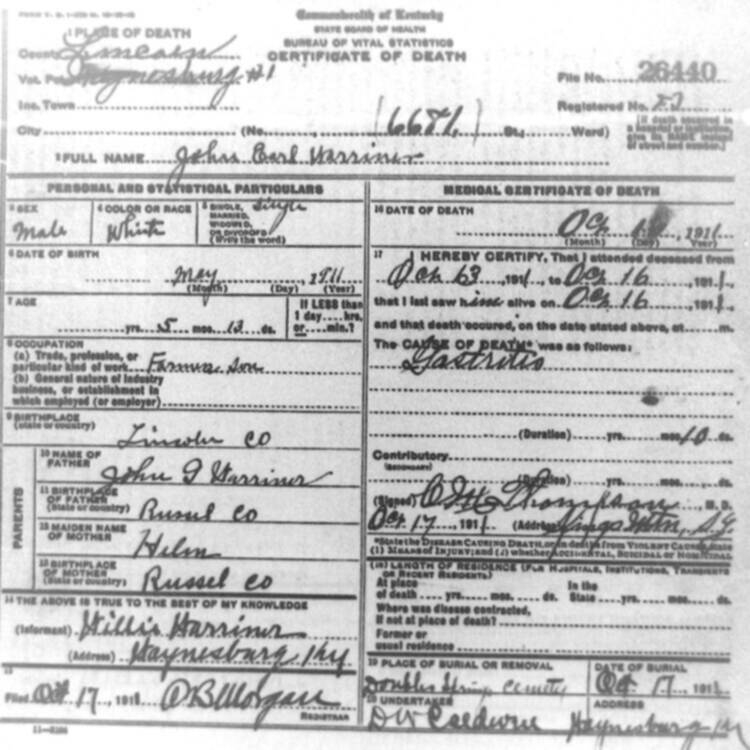 Commonwealth of Kentucky
STATE BOARD OF HEALTH
BUREAU OF VITAL STATISTICS
CERTIFICATE OF DEATH
1 PLACE OF DEATH
County Lincoln
Vot. Waynesburg #1
Inc. Town
City (No. 6681 St.; Ward)
File No. 26440
Registered No.
[If death occurred in a hospital or institution, give its NAME instead of street and number.]
2 FULL NAME John Earl Warriner
PERSONAL AND STATISTICAL PARTICULARS
3 SEX
Male
4 COLOR OR RACE
White
5 SINGLE, MARRIED, WIDOWED, OR DIVORCED (Write the word)
Single
6 DATE OF BIRTH
May 1911
(Month) (Day) (Year)
7 AGE
yrs. 5 mos. 13 ds.
If LESS than 1 day hrs. or min.?
8 OCCUPATION
(a) Trade, profession, or particular kind of work Farmer Son
(b) General nature of industry business, or establishment in which employed (or employer)
9 BIRTHPLACE
(State or country)
Lincoln CO
PARENTS
10 NAME OF FATHER
John G Warriner
11 BIRTHPLACE OF FATHER
(State or country) Russel Co
12 MAIDEN NAME OF MOTHER
Helm
13 BIRTHPLACE OF MOTHER
(State or country) Russel Co
14 THE ABOVE IS TRUE TO THE BEST OF MY KNOWLEDGE
(Informant) Willie Warriner
(Address) Waynesburg Ky
15
Filed Oct 17, 1911 O B Morgan
REGISTRAR
MEDICAL CERTIFICATE OF DEATH
16 DATE OF DEATH
Oct 1911
(Month) (Day) (Year)
17 I HEREBY CERTIFY, That I attended deceased from
Oct 1911, to Oct 16 1911,
that I last saw him alive on Oct 16 1911,
and that death occured, on the date stated above, at m.
The CAUSE OF DEATH* was as follows:
Gastritis
(Duration) yrs. mos. 10 ds.
Contributory
(SECONDARY)
(Duration) yrs. mos. ds.
(Signed) Thompson, M. D.
Oct 17, 1911 (Address) Kings Mtn,
*State the DISEASE CAUSING DEATH, or, in deaths from VIOLENT CAUSES, state (1) MEANS OF INJURY; and (2) whether ACCIDENTAL, SUICIDAL or HOMICIDAL
18 LENGTH OF RESIDENCE (FOR HOSPITALS, INSTITUTIONS, TRANSIENTS OR RECENT RESIDENTS)
At place of death yrs. mos. ds. In the State yrs. mos. ds.
Where was disease contracted,
if not at place of death?
Former or usual residence
19 PLACE OF BURIAL OR REMOVAL
Double Springs Cemetery
DATE OF BURIAL
Oct 17, 1911
20 UNDERTAKER
D W Caldwell
ADDRESS
Waynesburg Ky